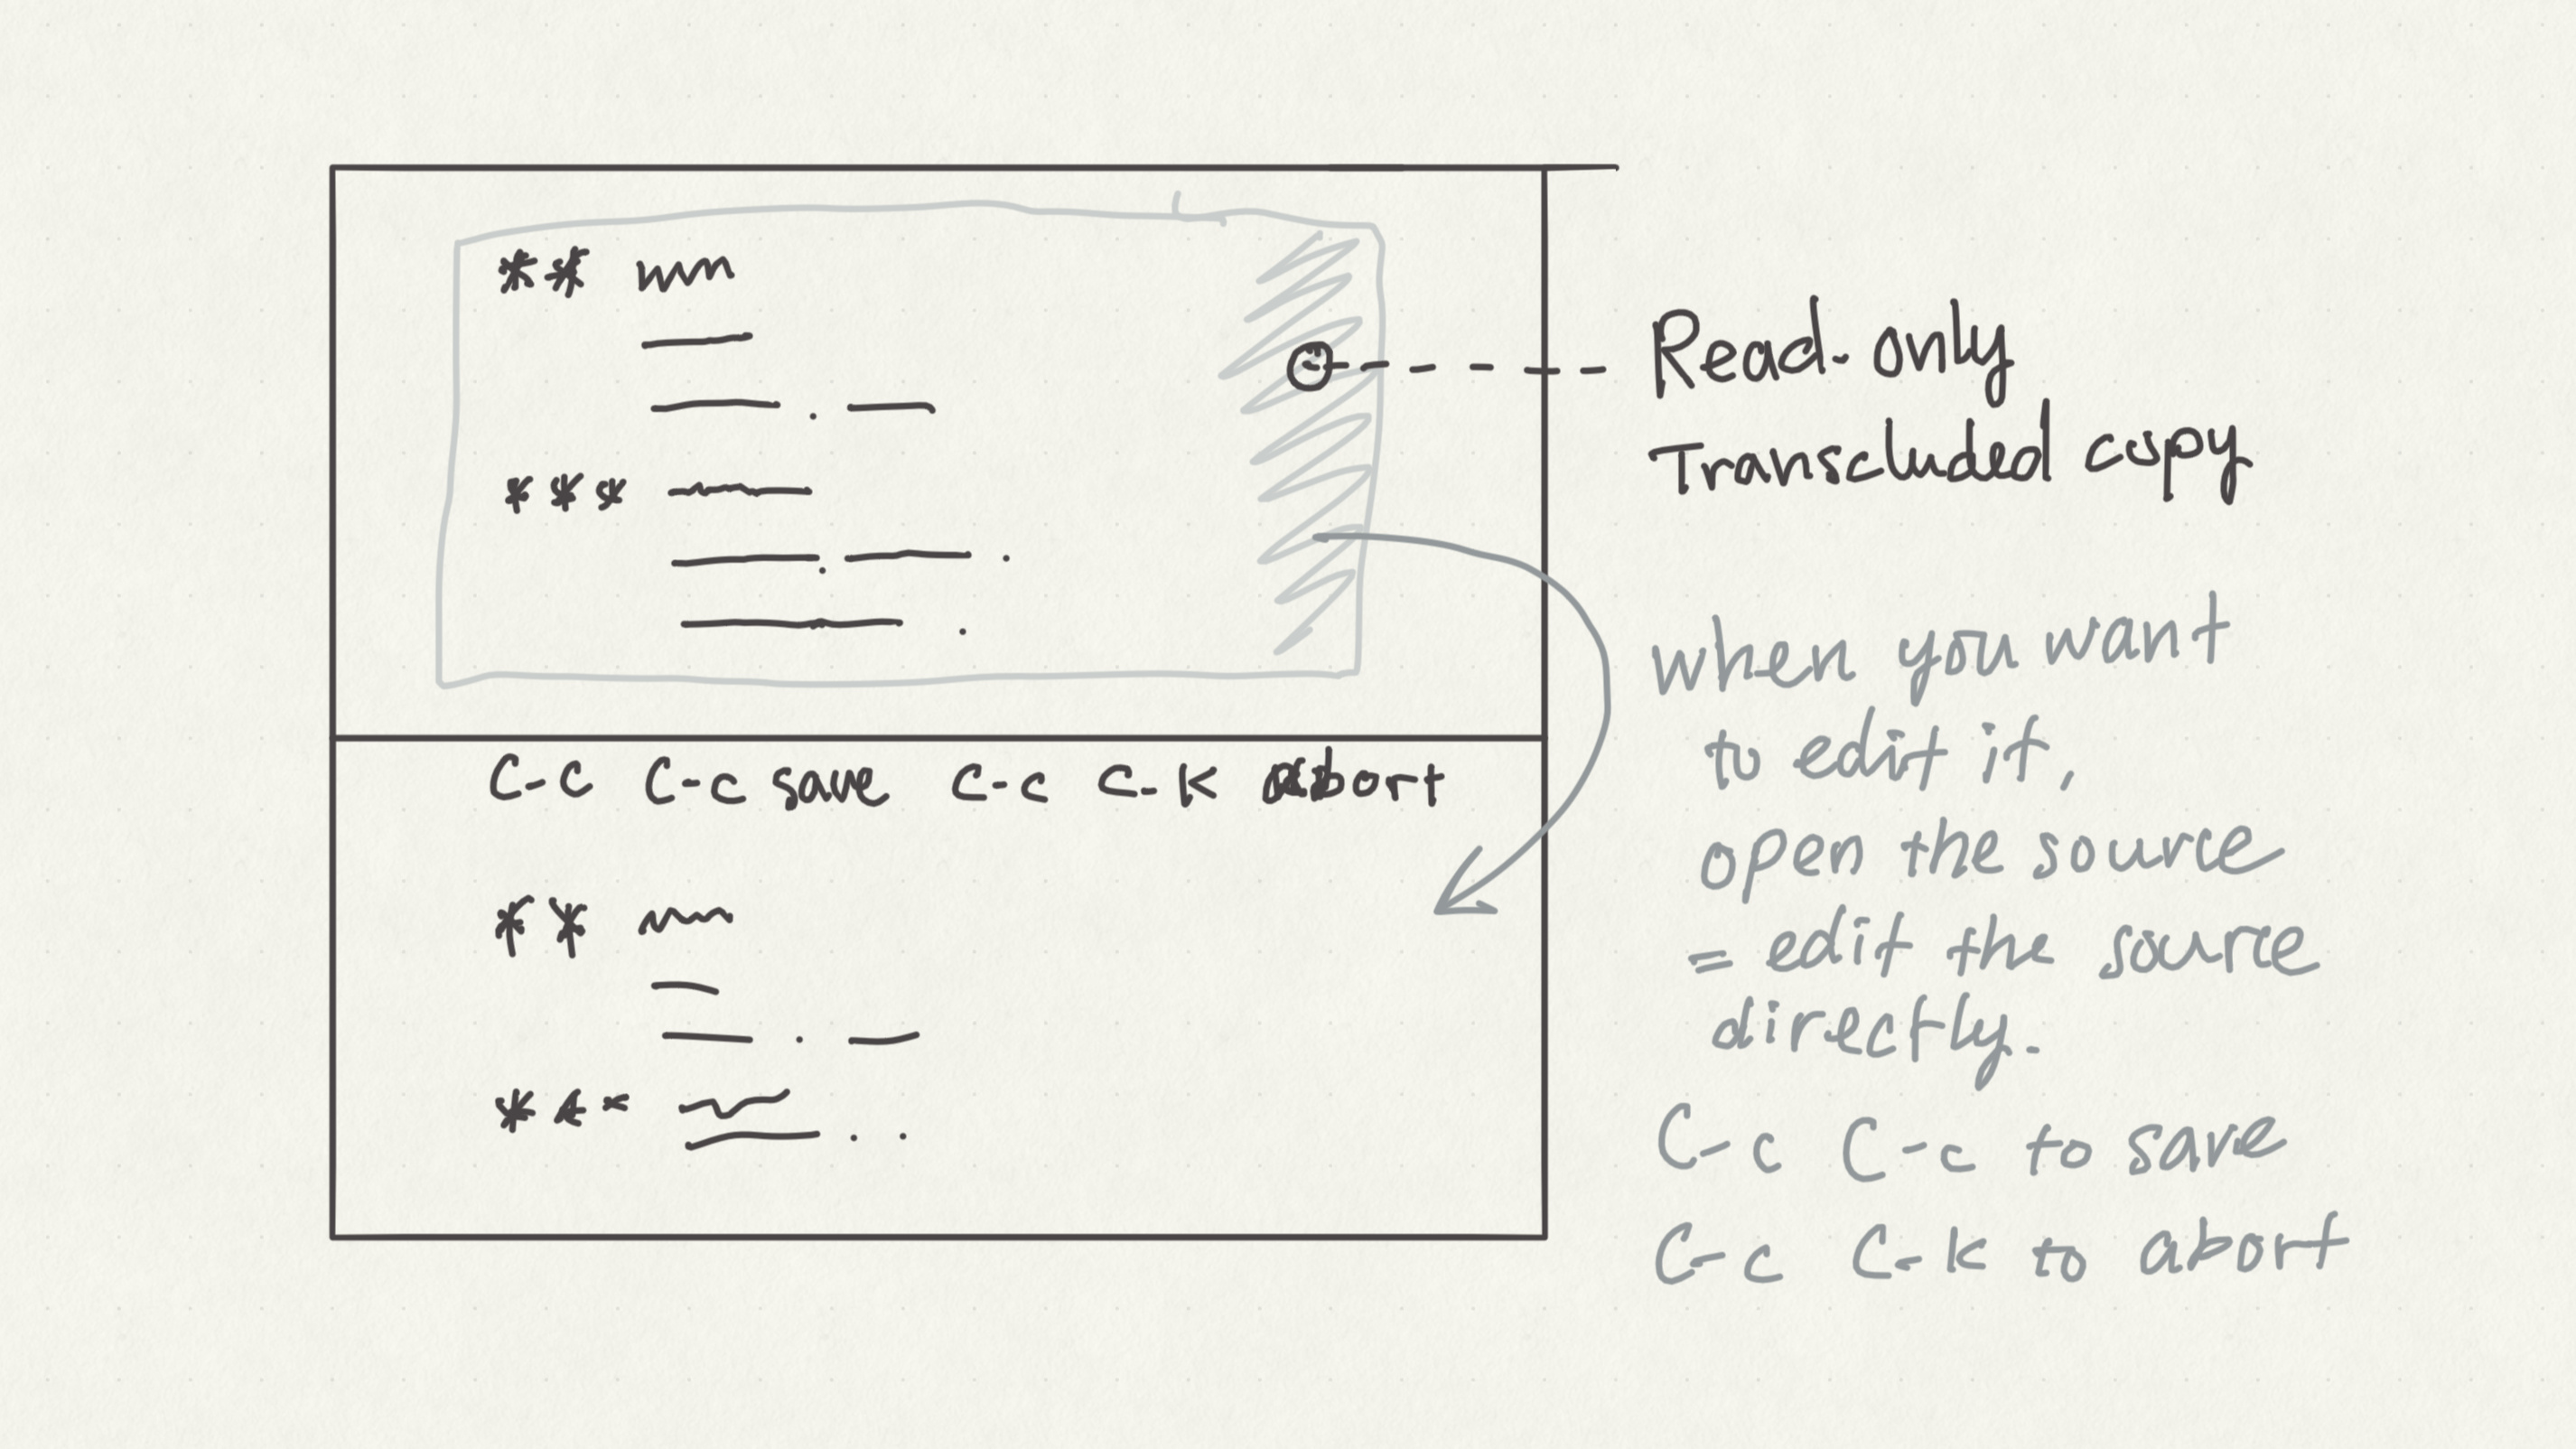 **
***
Read-only
Transcluded copy
when you want
to edit it,
open the source
= edit the source
directly.
C-c C-c to save
C-c C-k to abort
C-c C-c save C-c C-k abort
**
***